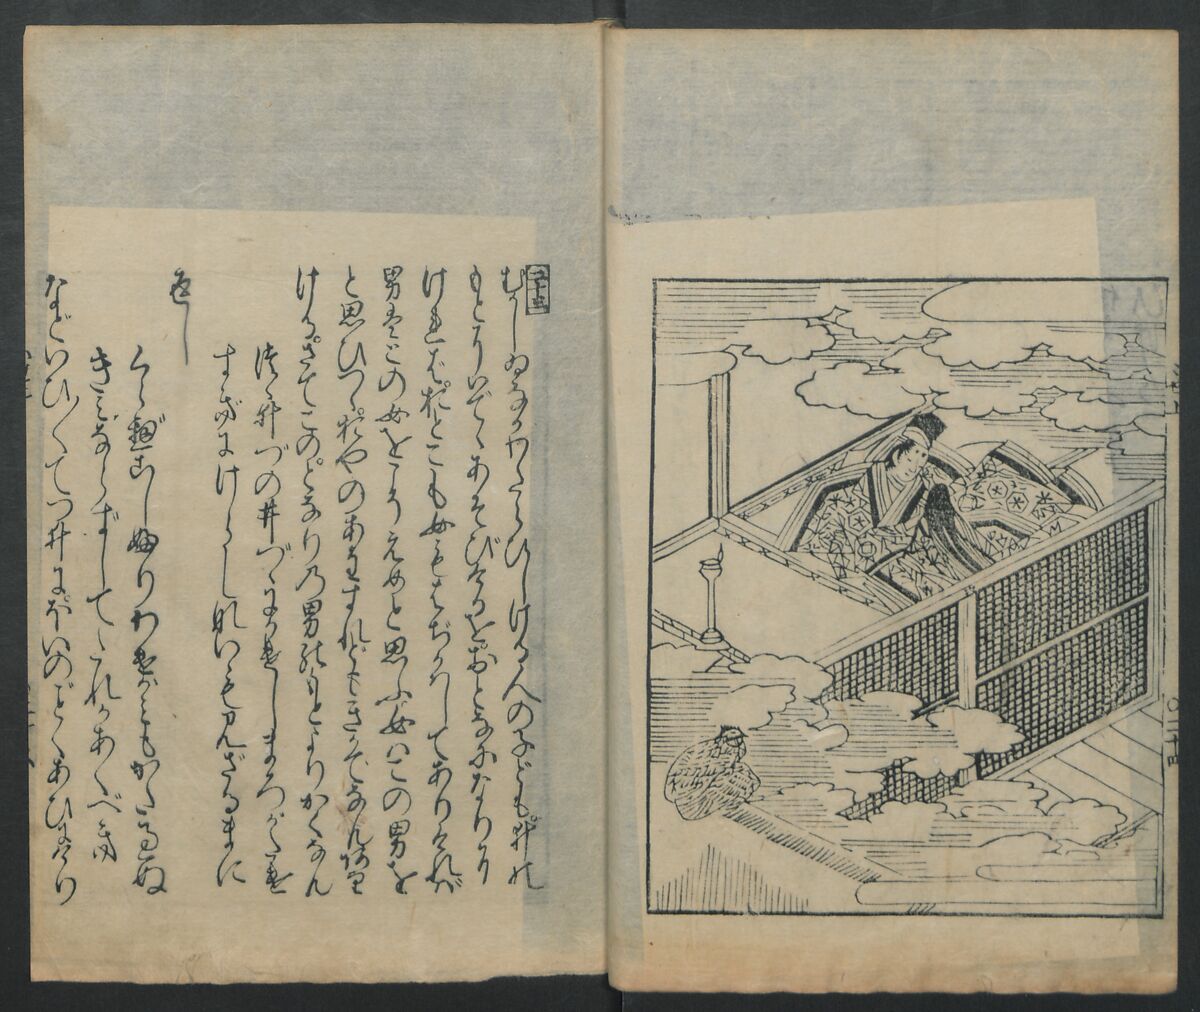 二十三
むかしゐなかわたらひしける人の子ども井の
もとにいでゝあそびけるをおとなになりに
ければおとこも女もはぢかはしてありけれど
男はこの女をこそえめと思ふ女はこの男を
と思ひつゝおやのあはすれどもきかでなんあり
けるさてこのとなりの男のもとよりかくなん
つゝ井づの井づゝにかけしまろがたけ
すぎにけらしないも見ざるまに
返し
くらべこしふりわけがみもかたすぎぬ
きみならずしてたれかあぐべき
などいひ〳〵てつ井にほいのごとくあひにけり